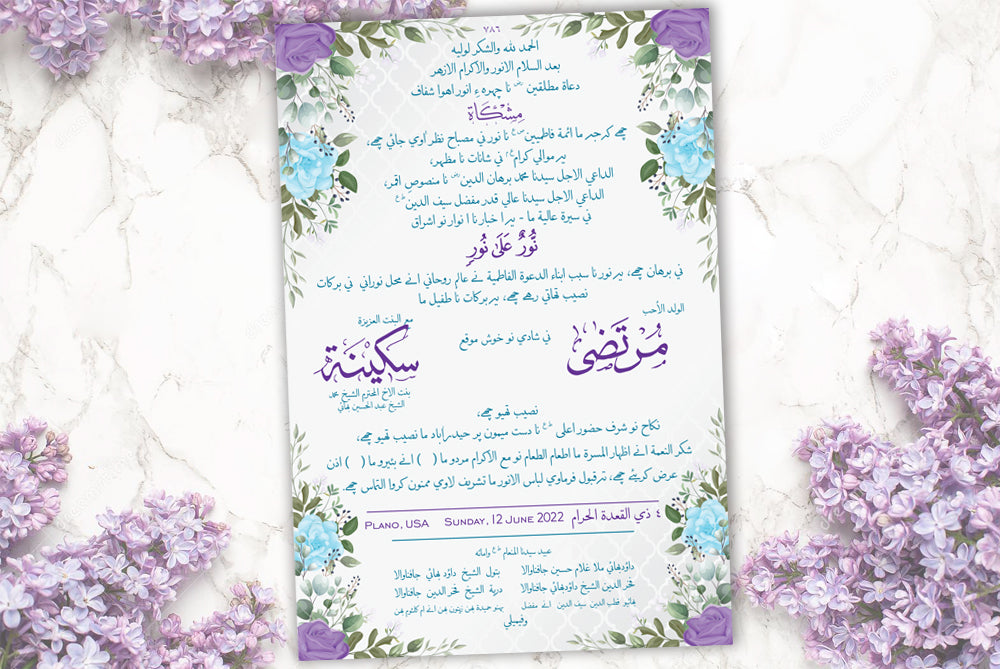 ٧٨٦
الحمد لله والشكر لوليه
بعد السلام الانور والاكرام الازهر
دعاة مطلقين رض نا چهره ءِ انور اهوا شفاف
مِشْكَاة
چھے كرجہ ما ائمة فاطميين ع م نا نور ني مصباح نظر اوي جائي چھے،
يہ موالي كرام ع م ني شانات نا مظهر،
الداعي الاجل سيدنا محمد برهان الدين رض نا منصوص اقمر،
الداعي الاجل سيدنا عالي قدر مفضل سيف الدين ط ع
ني سيرة عالية ما - يہ اخبار نا انوار نو اشراق
نُورٌ عَلَى نُورٍ
ني برهان چھے، يہ نور نا سبب ابناء الدعوة الفاطمية نے عالم روحاني انے محل نوراني ني بركات
نصيب تھاتي رهے چھے، يہ بركات نا طفيل ما
الولد الأحب
مُرتَضى
ني شادي نو خوش موقع
مع البنت العزيزة
سكينة
بنت الاخ المحترم الشيخ محمد
الشيخ عبد الحسين بھائي
نصيب تھيو چھے،
نكاح نو شرف حضور اعلى ط ع نا دست ميمون پر حيدراباد ما نصيب تھيو چھے،
شكر النعمة انے اظهار المسرة ما اطعام الطعام نو مع الاكرام مردو ما ( ) انے بئيرو ما ( ) اذن
عرض كريئے چھے، شرقبول فرماوي لباس الانور ما تشريف لاوي ممنون كروا التماس چھے.
٤ ذي القعدة الحرام Sunday, 12 June 2022 Plano, USA
عبيد سيدنا المنعام ط ع وامائه
داؤدبھائي ملا غلام حسين جافناوالا
بتول الشيخ داؤدبھائي جافناوالا
فخر الدين الشيخ داؤدبھائي جافناوالا
درية الشيخ فخر الدين جافناوالا
بھائيو قطب الدين سيف الدين انے مفضل
وفيملي